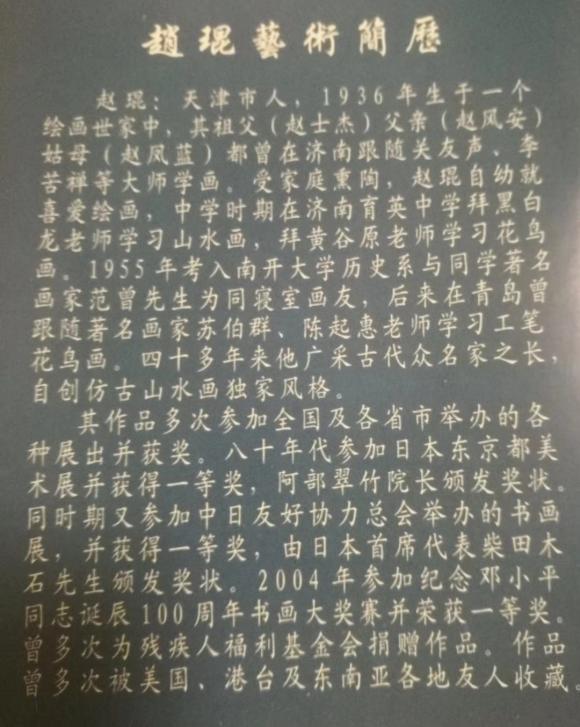 趙琨藝術簡歷
赵琨：天津市人，1936年生于一个
绘画世家中，其祖父（赵士杰）父亲（赵风安）
姑母（赵凤蓝）都曾在济南跟随关友声、李
苦禅等大师学画。受家庭熏陶，赵琨自幼就
喜爱绘画，中学时期在济南育英中学拜黑白
龙老师学习山水画，拜黄谷原老师学习花鸟
画。1955年考入南开大学历史系与同学著名
画家范曾先生为同寝室画友，后来在青岛曾
跟随著名画家苏伯群、陈起惠老师学习工笔
花鸟画。四十多年来他广采古代众名家之长，
自创仿古山水画独家风格。
其作品多次参加全国及各省市举办的各
种展出并获奖。八十年代参加日本东京都美
术展并获得一等奖，阿部翠竹院长颁发奖状。
同时期又参加中日友好协力总会举办的书画
展，并获得一等奖，由日本首席代表柴田木
石先生颁发奖状。2004年参加纪念邓小平
同志诞辰100周年书画大奖赛并荣获一等奖。
曾多次为残疾人福利基金会捐赠作品。作品
曾多次被美国、港台及东南亚各地友人收藏。